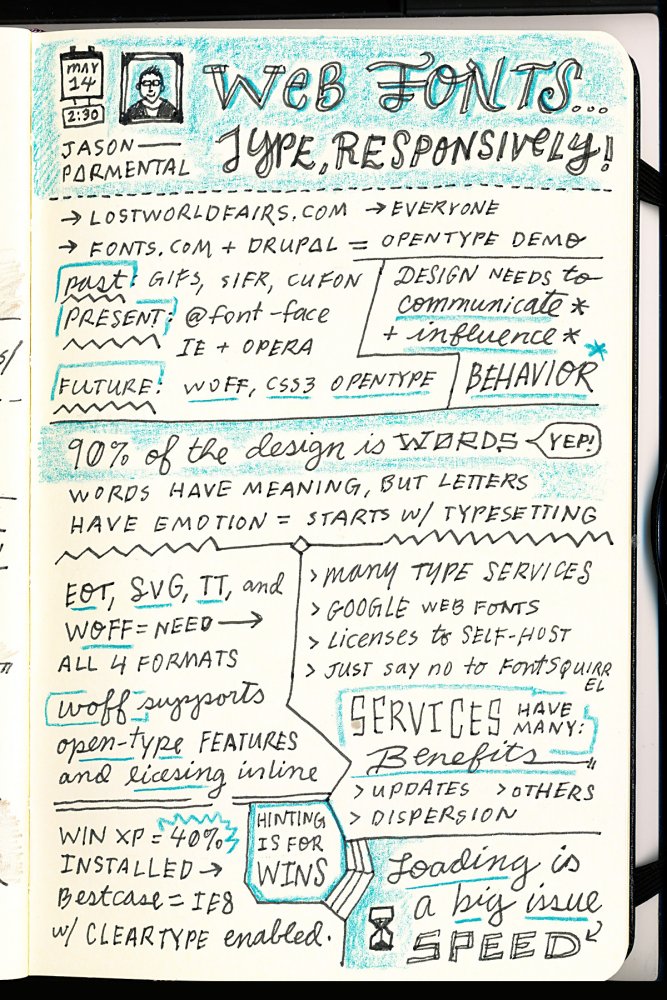 MAY
14
2:30
JASON
PARMENTAL
WEB FONTS...
TYPE, RESPONSIVELY!
→ LOSTWORLDFAIRS.COM → EVERYONE
→ FONTS.COM + DRUPAL = OPENTYPE DEMO
past: GIFS, SIFR, CUFON
PRESENT: @font-face
IE + OPERA
FUTURE: WOFF, CSS3 OPENTYPE
DESIGN NEEDS to
communicate *
+ influence *
* BEHAVIOR
90% of the design is WORDS
YEP!
WORDS HAVE MEANING, BUT LETTERS
HAVE EMOTION = STARTS W/ TYPESETTING
EOT, SVG, TT, and
WOFF = NEED →
ALL 4 FORMATS
woff supports
open-type FEATURES
and licesing inline
> many TYPE SERVICES
> GOOGLE WEB FONTS
> Licenses to SELF-HOST
> JUST say no to FONTSQUIRR
EL
SERVICES HAVE
MANY:
Benefits
> UPDATES > OTHERS
> DISPERSION
WIN XP = 40%
INSTALLED →
Bestcase = IE8
w/ CLEARTYPE enabled.
HINTING
IS FOR
WINS
Loading is
a big issue
SPEED